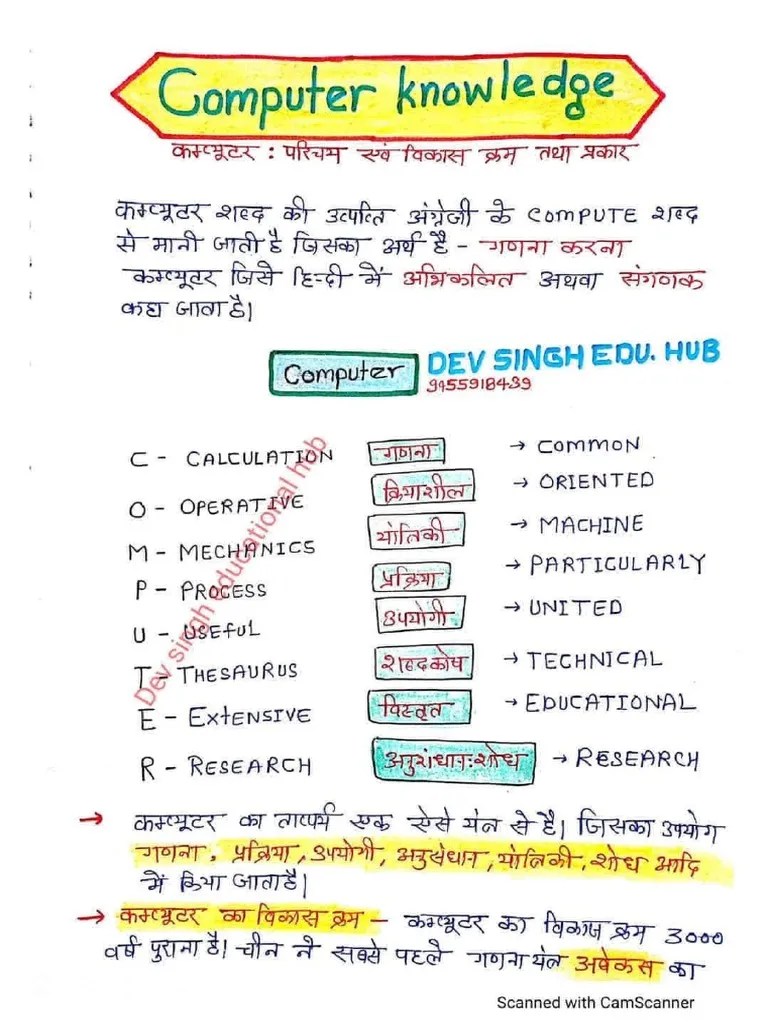 Computer knowledge
कम्प्यूटर : परिचय एवं विकास क्रम तथा प्रकार
कम्प्यूटर शब्द की उत्पत्ति अंग्रेजी के COMPUTE शब्द
से मानी जाती है जिसका अर्थ है - गणना करना
कम्प्यूटर जिसे हिन्दी में अभिकलित अथवा संगणक
कहा जाता है।
Computer DEV SINGH EDU. HUB
9455918439
C - CALCULATION गणना → COMMON
O - OPERATIVE क्रियाशील → ORIENTED
M - MECHANICS यांत्रिकी → MACHINE
P - PROCESS प्रक्रिया → PARTICULARLY
U - USEFUL उपयोगी → UNITED
T - THESAURUS शब्दकोष → TECHNICAL
E - EXTENSIVE विस्तृत → EDUCATIONAL
R - RESEARCH अनुसंधान:शोध → RESEARCH
Dev singh educational hub
→ कम्प्यूटर का तात्पर्य एक ऐसे यंत्र से है। जिसका उपयोग
गणना, प्रक्रिया, उपयोगी, अनुसंधान, यांत्रिकी, शोध आदि
में किया जाता है।
→ कम्प्यूटर का विकास क्रम - कम्प्यूटर का विकास क्रम 3000
वर्ष पुराना है। चीन ने सबसे पहले गणना यंत्र अबेकस का
Scanned with CamScanner